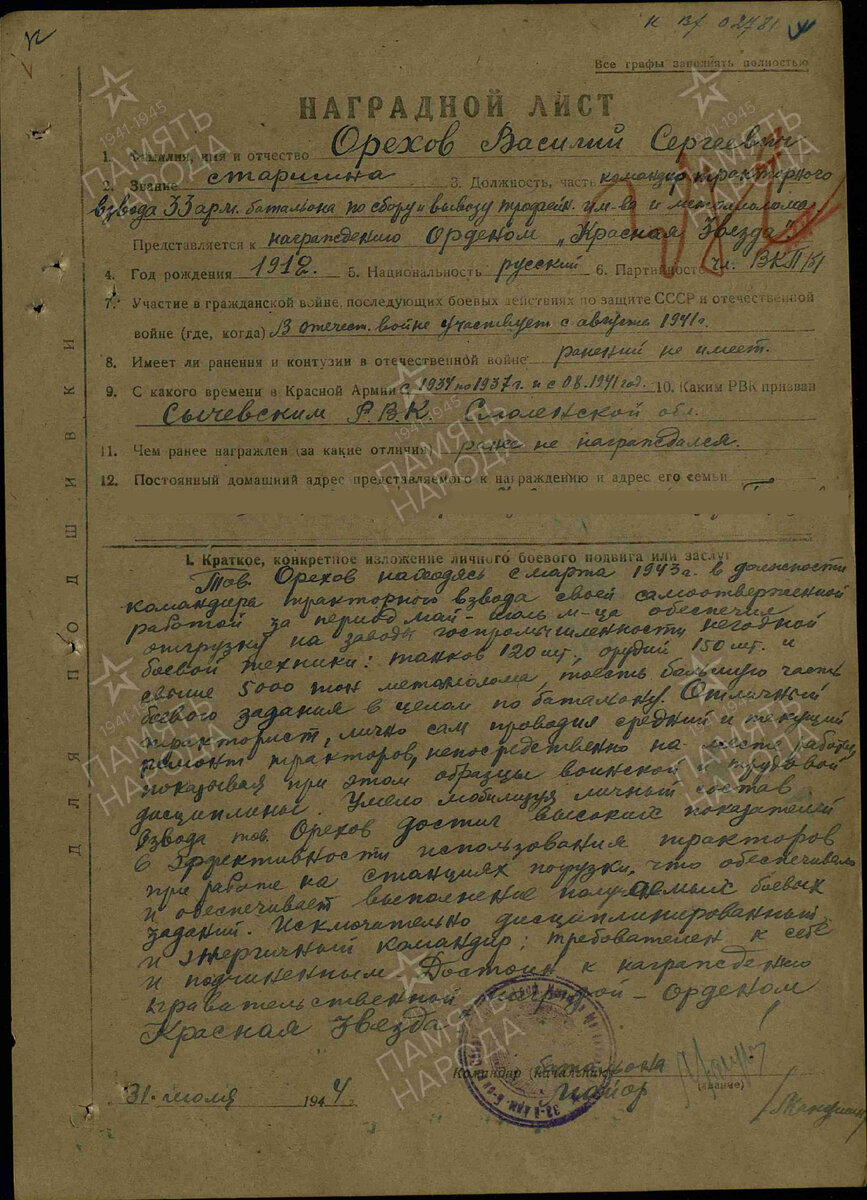 к вх 02781
Все графы заполнять полностью
НАГРАДНОЙ ЛИСТ
1. Фамилия, имя и отчество Орехов Василий Сергеевич
2. Звание старшина 3. Должность, часть командир тракторного
взвода 33 арм. батальона по сбору и вывозу трофейн. им-ва и металолома
Представляется к награждению Орденом „Красная Звезда"
4. Год рождения 1912. 5. Национальность русский 6. Партийность чл. ВКП/б/
7. Участие в гражданской войне, последующих боевых действиях по защите СССР и отечественной
войне (где, когда) В отечест. войне участвует с августа 1941 г.
8. Имеет ли ранения и контузии в отечественной войне ранений не имеет.
9. С какого времени в Красной Армии с 1934 по 1937 г. и с 08.1941 год. 10. Каким РВК призван
Сычевским Р.В.К. Смоленской обл.
11. Чем ранее награжден (за какие отличия) ранее не награждался.
12. Постоянный домашний адрес представляемого к награждению и адрес его семьи
I. Краткое, конкретное изложение личного боевого подвига или заслуг
Тов. Орехов находясь с марта 1943 г. в должности
командира тракторного взвода своей самоотверженной
работой за период май-июль м-ца обеспечил
отгрузку на заводы госпромышленности негодной
боевой техники: танков 120 шт, орудий 150 шт. и
свыше 5000 тон металолома, тоесть большую часть
боевого задания в целом по батальону. Отличный
тракторист, лично сам проводил средний и текущий
ремонт тракторов, непосредственно на месте работы,
показывая при этом образцы воинской и трудовой
дисциплины. Умело мобилизуя личный состав
взвода тов. Орехов достиг высоких показателей
в эффективности использования тракторов
при работе на станциях погрузки, что обеспечивало
и обеспечивает выполнение получаемых боевых
заданий. Исключительно дисциплинированный
и энергичный командир; требователен к себе
и подчиненным. Достоин к награждению
правительственной наградой – орденом
Красная Звезда.
Командир (начальник) батальона
майор
(звание)
31. июля 1944 г.
ДЛЯ ПОДШИВКИ
1941-1945
ПАМЯТЬ
НАРОДА